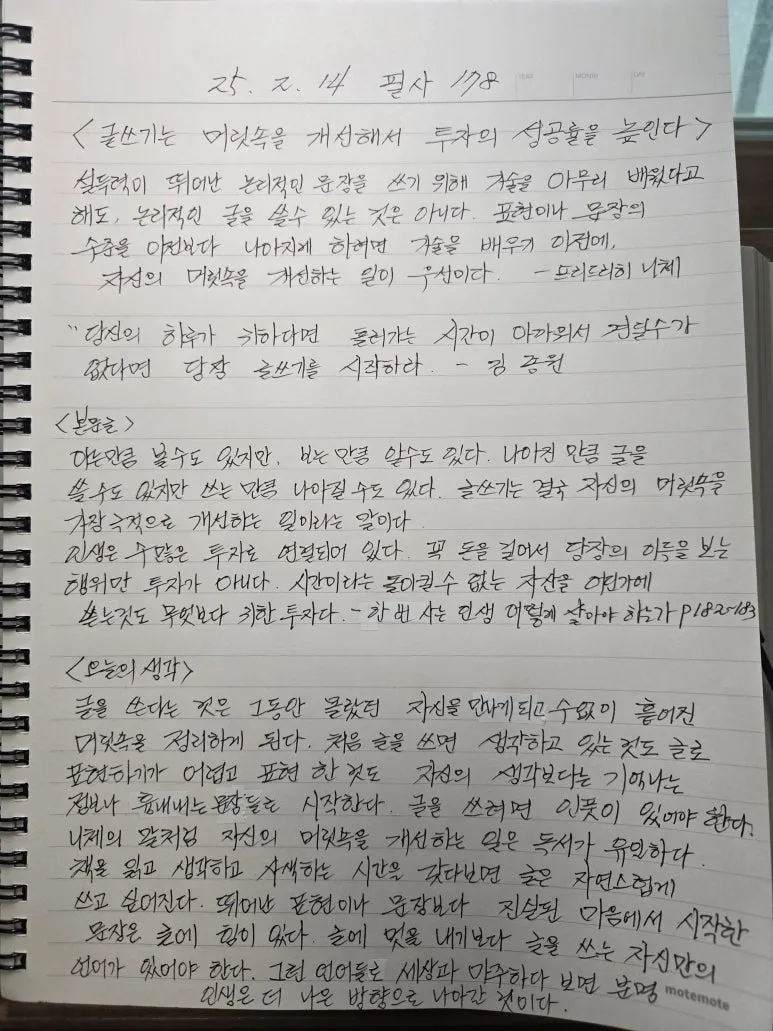 25. 2. 14 필사 178
<글쓰기는 머릿속을 개선해서 투자의 성공률을 높인다>
설득력이 뛰어난 논리적인 문장을 쓰기 위해 기술을 아무리 배웠다고
해도, 논리적인 글을 쓸수 있는 것은 아니다. 표현이나 문장의
수준을 이전보다 나아지게 하려면 기술을 배우기 이전에,
자신의 머릿속을 개선하는 일이 우선이다. - 프리드리히 니체
"당신의 하루가 귀하다면 흘러가는 시간이 아까워서 견딜수가
없다면 당장 글쓰기를 시작하라. - 김 종원
<본문글>
아는만큼 볼수도 있지만, 보는 만큼 알수도 있다. 나아진 만큼 글을
쓸 수도 있지만 쓰는 만큼 나아질 수도 있다. 글쓰기는 결국 자신의 머릿속을
가장 극적으로 개선하는 일이라는 말이다.
인생은 수많은 투자로 연결되어 있다. 꼭 돈을 걸어서 당장의 이득을 보는
행위만 투자가 아니다. 시간이라는 돌이킬 수 없는 자산을 어딘가에
쓰는것도 무엇보다 귀한 투자다. - 한 번 사는 인생 어떻게 살아야 하는가 p182-183
<오늘의 생각>
글을 쓰다는 것은 그동안 몰랐던 자신을 만나게 되고 수없이 흩어진
머릿속을 정리하게 된다. 처음 글을 쓰면 생각하고 있는 것도 글로
표현하기가 어렵고 표현 한 것도 자신의 생각보다는 기억나는
정보나 흉내내는 문장들로 시작한다. 글을 쓰려면 인풋이 있어야 한다.
니체의 말처럼 자신의 머릿속을 개선하는 일은 독서가 유일하다.
책을 읽고 생각하고 사색하는 시간을 갖다보면 글은 자연스럽게
쓰고 싶어진다. 뛰어난 표현이나 문장보다 진실된 마음에서 시작한
문장은 글에 힘이 있다. 글에 멋을 내기보다 글을 쓰는 자신만의
언어가 있어야 한다. 그런 언어들로 세상과 마주하다 보면 분명
인생은 더 나은 방향으로 나아간 것이다.
motemote